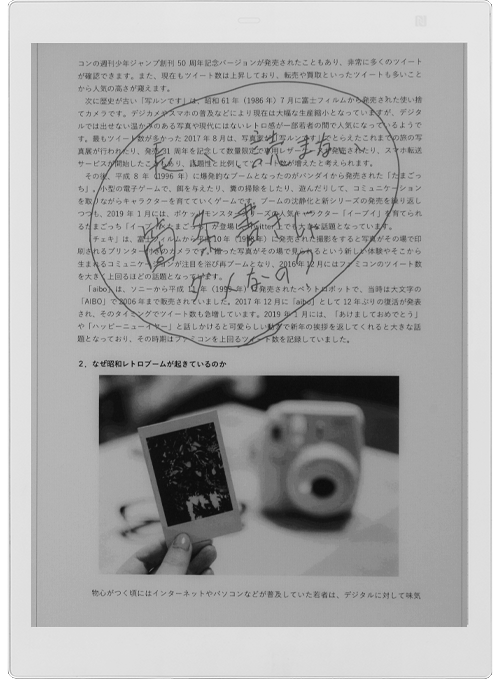 コンの週刊少年ジャンプ創刊 50 周年記念バージョンが発売されたこともあり、非常に多くのツイート
が確認できます。また、現在もツイート数は上昇しており、転売や買取といったツイートも多いこと
から人気の高さが窺えます。
次に歴史が古い「写ルンです」は、昭和 61 年（1986 年）7 月に富士フィルムから発売された使い捨
てカメラです。デジカメやスマホの普及などにより現在は大幅な生産縮小となっていますが、デジタ
ルでは出せない温かみのある写真や現代にはないレトロ感が一部若者の間で人気になっているようで
す。最もツイート数が多かった 2017 年 8 月は、写真家が「写ルンです」でとらえたこれまでの旅の写
真展が行われたり、発売 31 周年を記念して数量限定で レザー 発売されたり、スマホ転送
サービスが開始したこともあり、話題性と比例して 数が増えたと考えられます。
その後、平成 8 年（1996 年）に爆発的なブームとなったのがバンダイから発売された「たまご
っち」。小型の電子ゲームで、餌を与えたり、糞の掃除をしたり、遊んだりして、コミュニケーション
を取りながらキャラクターを育てていくゲームです。ブームの沈静化と新シリーズの発売を繰り返し
つつも、2019 年 1 月には、ポケットモンスター の人気キャラクター「イーブイ」を育てられ
るたまごっち「イーブイ が登場し 上でも大きな話題となっています。
「チェキ」は、富士フィルムから平成 10 年（1998 年）に発売された撮影をすると写真がその場で印
刷されるプリンター カメラです。撮った写真がその場で見られるという新しい体験やそこから
生まれるコミュニケーションが注目を浴び再ブームとなり、2016 年 12 月にはファミコンのツイート数
を大きく上回るほどの話題となっています。
「aibo」は、ソニーから平成 11 年（1999 年）に発売されたペットロボットで、当時は大文字の
「AIBO」で 2006 年まで販売されていました。2017 年 12 月に「aibo」として 12 年ぶりの復活が発表
され、そのタイミングでツイート数も急増しています。2019 年 1 月には、「あけましておめでとう」
や「ハッピーニューイヤー」と話しかけると可愛らしい動きで新年の挨拶を返してくれると大きな話
題となっており、その時期はファミコンを上回るツイート数を記録していました。
2、なぜ昭和レトロブームが起きているのか
物心がつく頃にはインターネットやパソコンなどが普及していた若者は、デジタルに対して味気